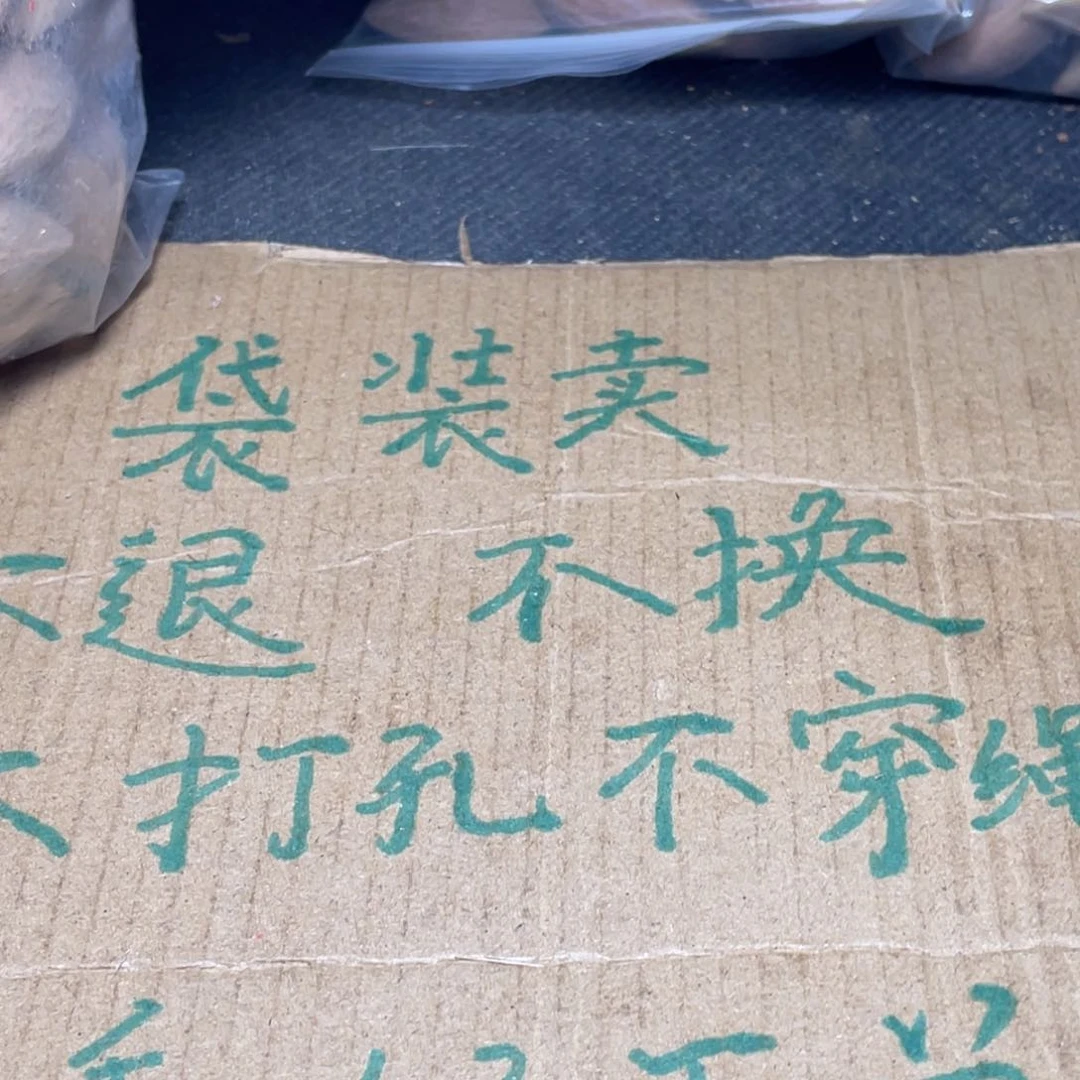 袋装卖
不退 不换
不打孔不穿绳